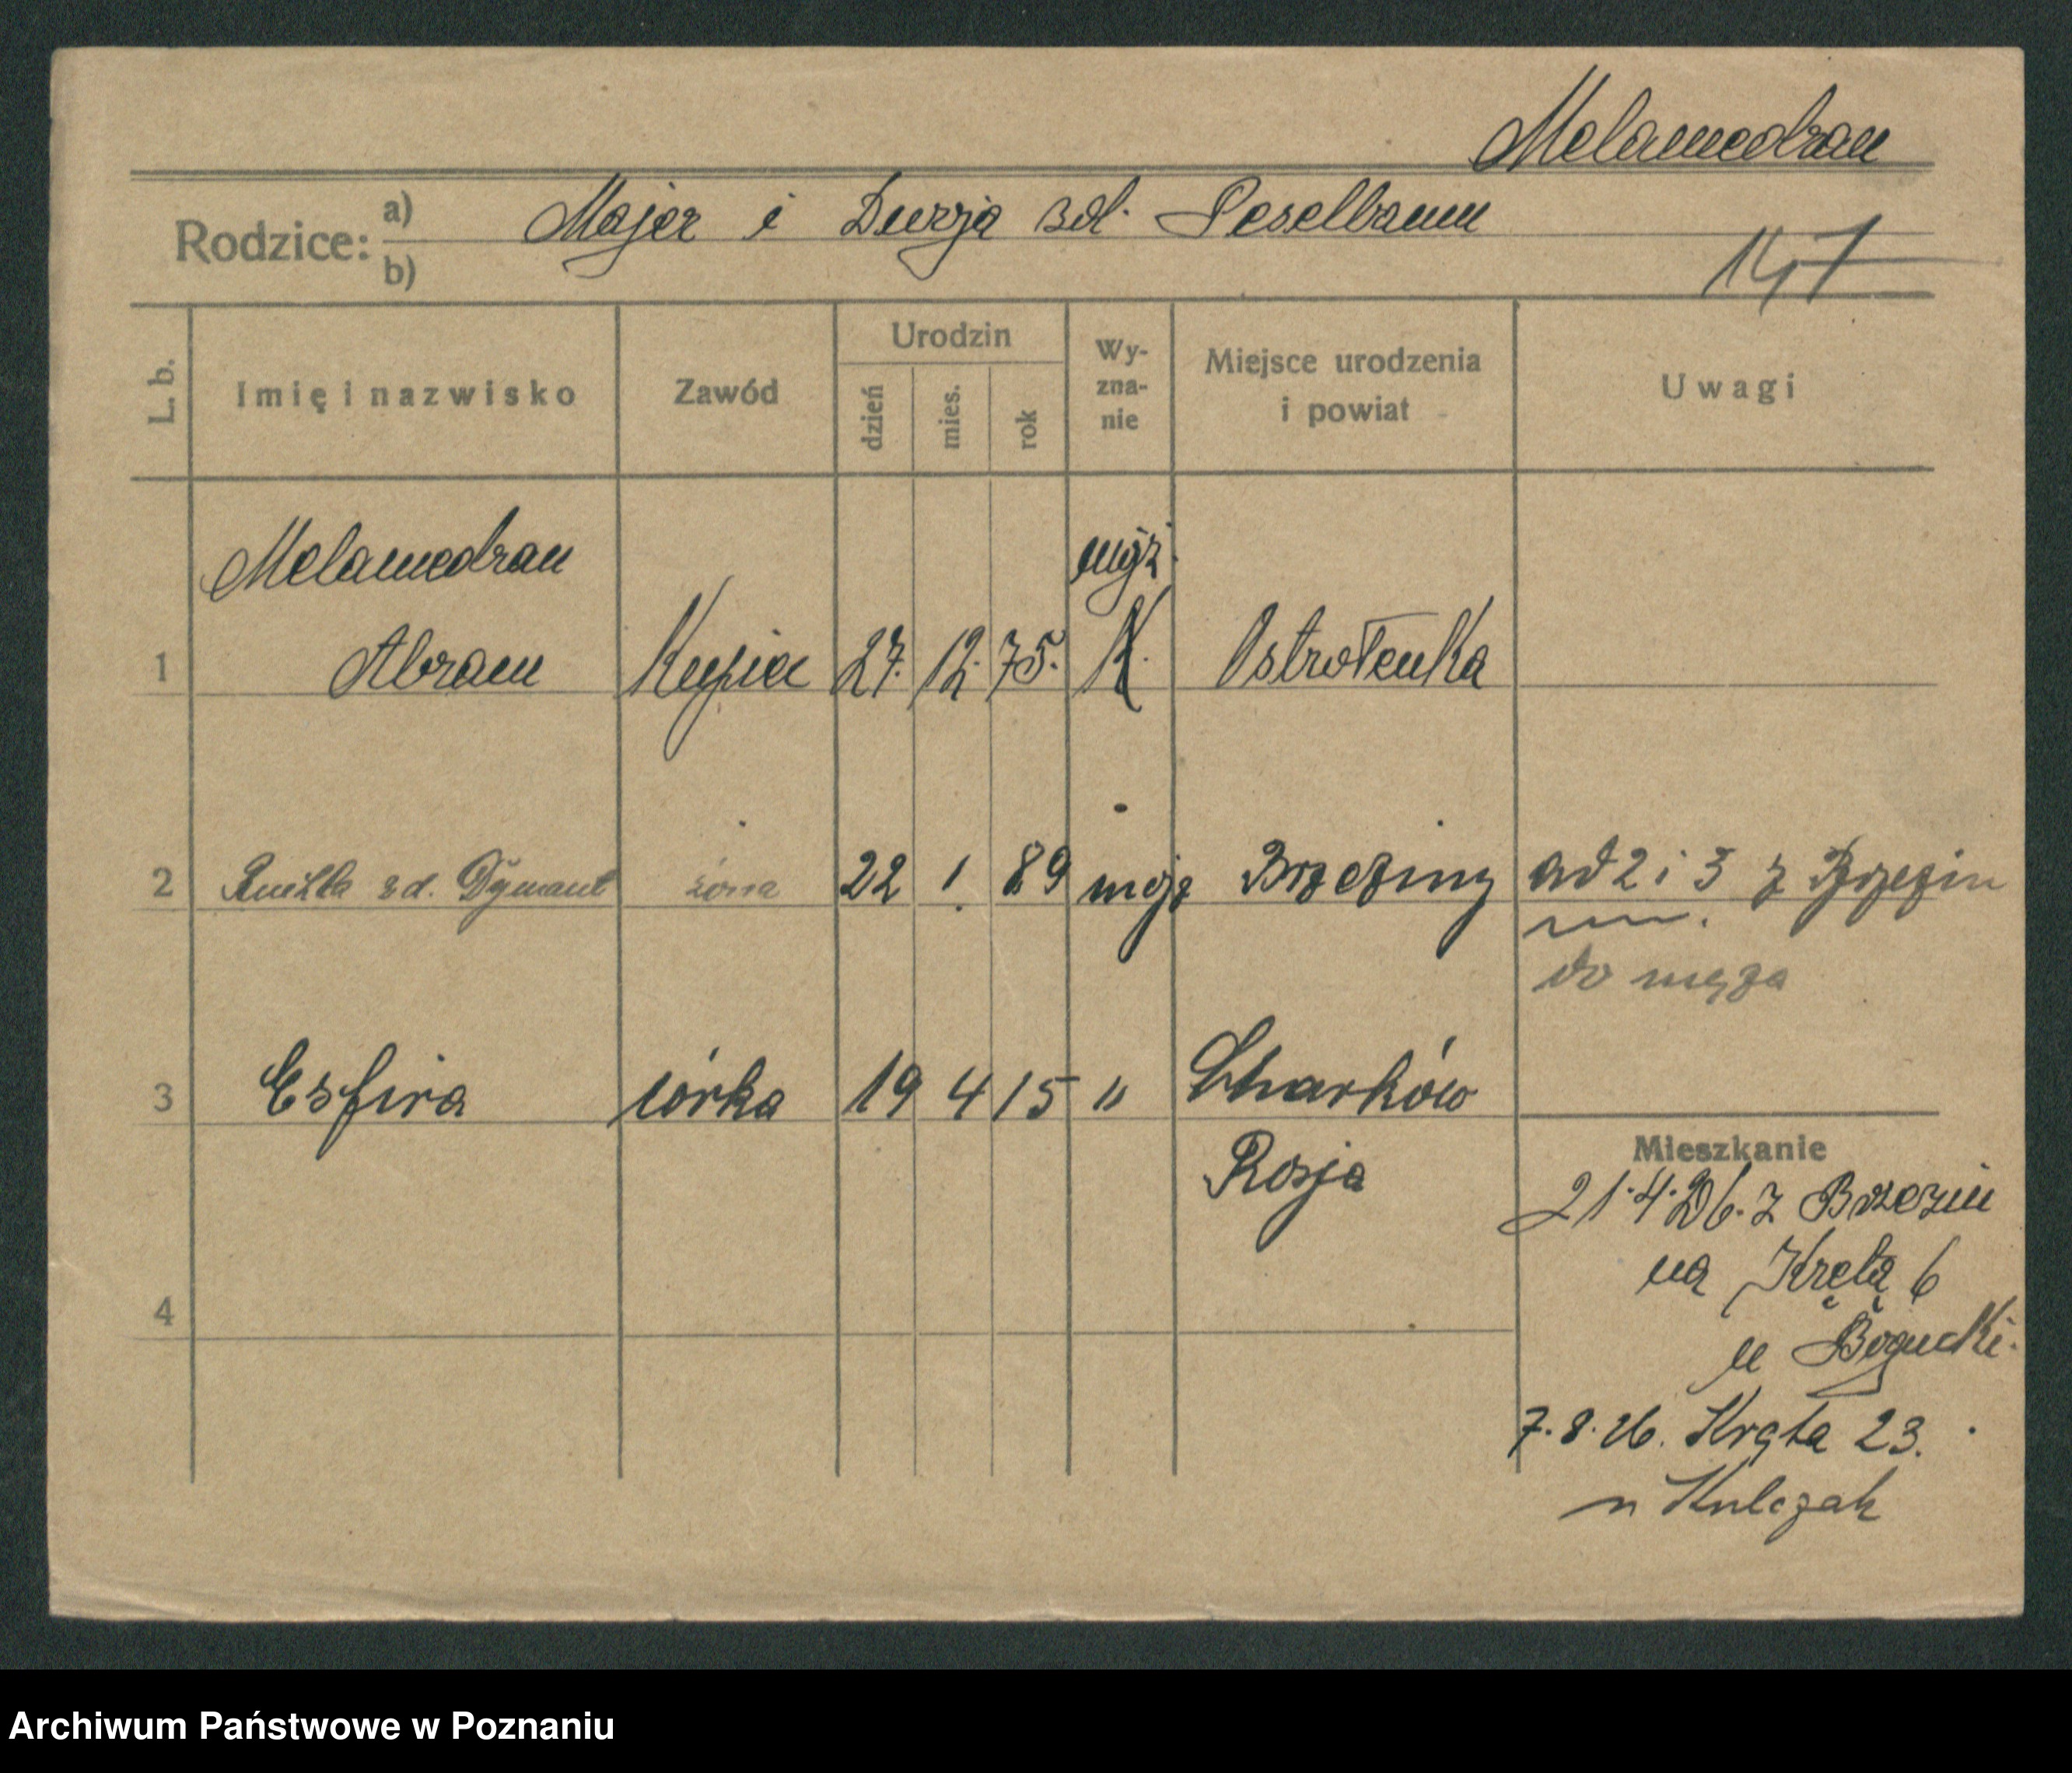 Melamedzan
Rodzice: a) b)
Majer i zd.
147
L. b.
Imię i nazwisko
Zawód
Urodzin
dzień
mies.
rok
Wy-
zna-
nie
Miejsce urodzenia
i powiat
Uwagi
Melamedzan
mojż.
1 Abram Kupiec 27. 12. 75. K. Ostrołenka
2 zd. Dymant żona 22 1. 89 mojż Brzeziny ad 2 i 3 z Brzezin
do męża
3 Esfira córka 19 4 15 " Charków
Rosja
4
Mieszkanie
21.4.26. z Brzezin
na Krętą 6
u Bogucki.
7.8.26. Kręta 23.
u Kulczak
Archiwum Państwowe w Poznaniu